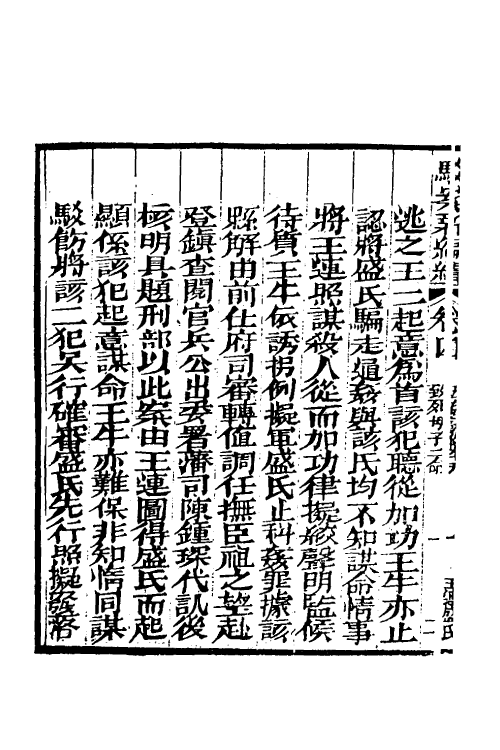 逃之王二起意爲首該犯聽從加功王牛亦止
認將盛氏騙走逼姦與該氏均不知謀命情事
將王蓮照謀殺人從而加功律擬絞聲明監候
待質王牛依誘拐例擬軍盛氏止科姦罪據該
縣解由前任府司審轉值調任撫臣祖之望赴
登鎮查閱官兵公出委署藩司陳鍾琛代訊後
核明具題刑部以此案由王蓮圖得盛氏而起
顯係該犯起意謀命王牛亦難保非知情同謀
駁飭將該二犯另行確審盛氏先行照擬發落